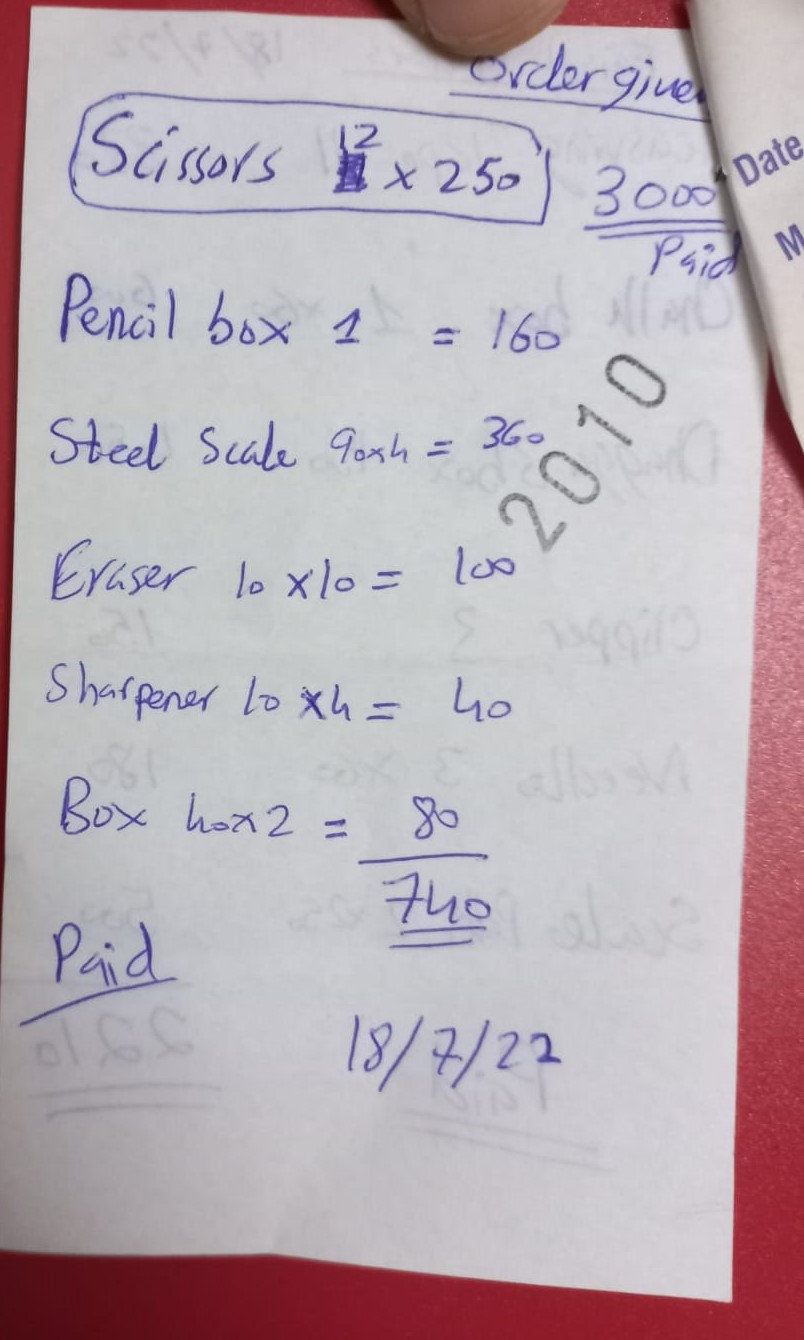 Order give
Scissors 12 x 250 3000
Paid
Date
M
Pencil box 1 = 160
Steel Scale 90x4 = 360
2010
Eraser 10 x 10 = 100
Sharpener 10 x 4 = 40
Box 40x2 = 80
740
Paid
18/7/22